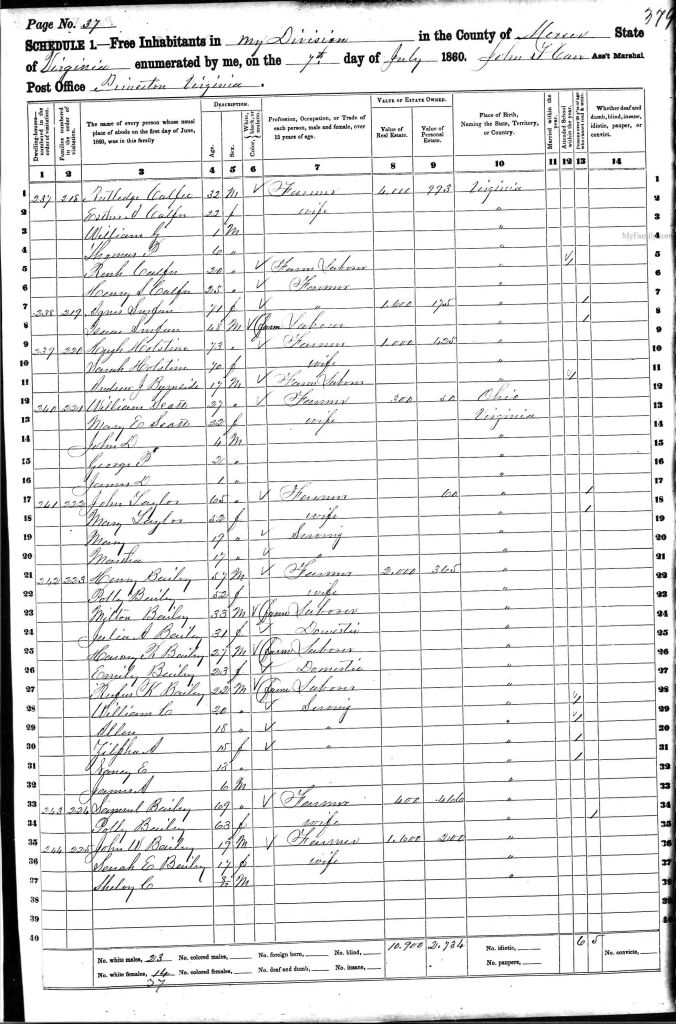 Page No. 37
379
SCHEDULE 1.—Free Inhabitants in my Division in the County of Mercer State
of Virginia enumerated by me, on the 7th day of July 1860. John T Carr Ass't Marshal
Post Office Princeton Virginia.
Dwelling-houses numbered in the order of visitation. Families numbered in the order of visitation. The name of every person whose usual place of abode on the first day of June, 1860, was in this family DESCRIPTION. Age. Sex. Color, White, black, or mulatto. Profession, Occupation, or Trade of each person, male and female, over 15 years of age. VALUE OF ESTATE OWNED. Value of Real Estate. Value of Personal Estate. Place of Birth, Naming the State, Territory, or Country. Married within the year. Attended School within the year. Persons over 20 y'rs of age who cannot read & write. Whether deaf and dumb, blind, insane, idiotic, pauper, or convict.
1 2 3 4 5 6 7 8 9 10 11 12 13 14
1 237 218 Rutledge Calfee 32 M ✓ Farmer 4,000 993 Virginia 1
2 Calfee 22 f wife " 2
3 William G 1 M " 3
4 Thomas P 6 " " 4
MyFamily.com
5 Calfee 20 " ✓ Farm Laborer " 5
6 Henry S Calfee 25 " ✓ Farmer " 6
7 238 219 71 f ✓ " 1,600 175 " 1 7
8 Isaac 43 M ✓ Farm Laborer " 1 8
9 239 220 Hugh Holstine 73 " ✓ Farmer 1,000 425 " 9
10 Sarah Holstine 70 f wife " 10
11 Andrew J Burnside 17 M ✓ Farm Labor " 1 11
12 240 221 William Scott 27 " ✓ Farmer 300 50 Ohio 12
13 Mary E Scott 22 f wife Virginia 13
14 John D 4 M " 14
15 George P 2 " " 15
16 James D 1 " " 16
17 241 222 John Taylor 65 " ✓ Farmer 60 " 1 17
18 Mary Taylor 52 f wife " 1 18
19 Mary 19 " ✓ Serving " 19
20 Martha 17 " ✓ " " 20
21 242 223 Henry Bailey 57 M ✓ Farmer 2,000 365 " 21
22 Polly Bailey 52 f wife " 22
23 Milton Bailey 33 M ✓ Farm Laborer " 23
24 Julia A Bailey 31 f ✓ Domestic " 24
25 Harvey Bailey 27 M ✓ Farm Laborer " 25
26 Emily Bailey 23 f ✓ Domestic " 26
27 Rufus K Bailey 22 M ✓ Farm Laborer " 27
28 William C 20 " ✓ Serving " 1 28
29 Ellen 18 " ✓ " " 1 29
30 Zilpha A 15 f ✓ " " 1 30
31 Nancy E 13 " " 1 31
32 James A 6 M " 32
33 243 224 Samuel Bailey 69 " ✓ Farmer 400 466 " 33
34 Polly Bailey 63 f wife " 1 34
35 244 225 John W Bailey 19 M ✓ Farmer 1,600 200 " 35
36 Sarah E Bailey 17 f wife " 36
37 Shelby C M " 37
38 38
39 39
40 10,900 2,734 6 5 40
No. white males, 23 No. colored males, No. foreign born, No. blind, No. idiotic, No. convicts,
No. white females, 14 No. colored females, No. deaf and dumb, No. insane, No. paupers,
37